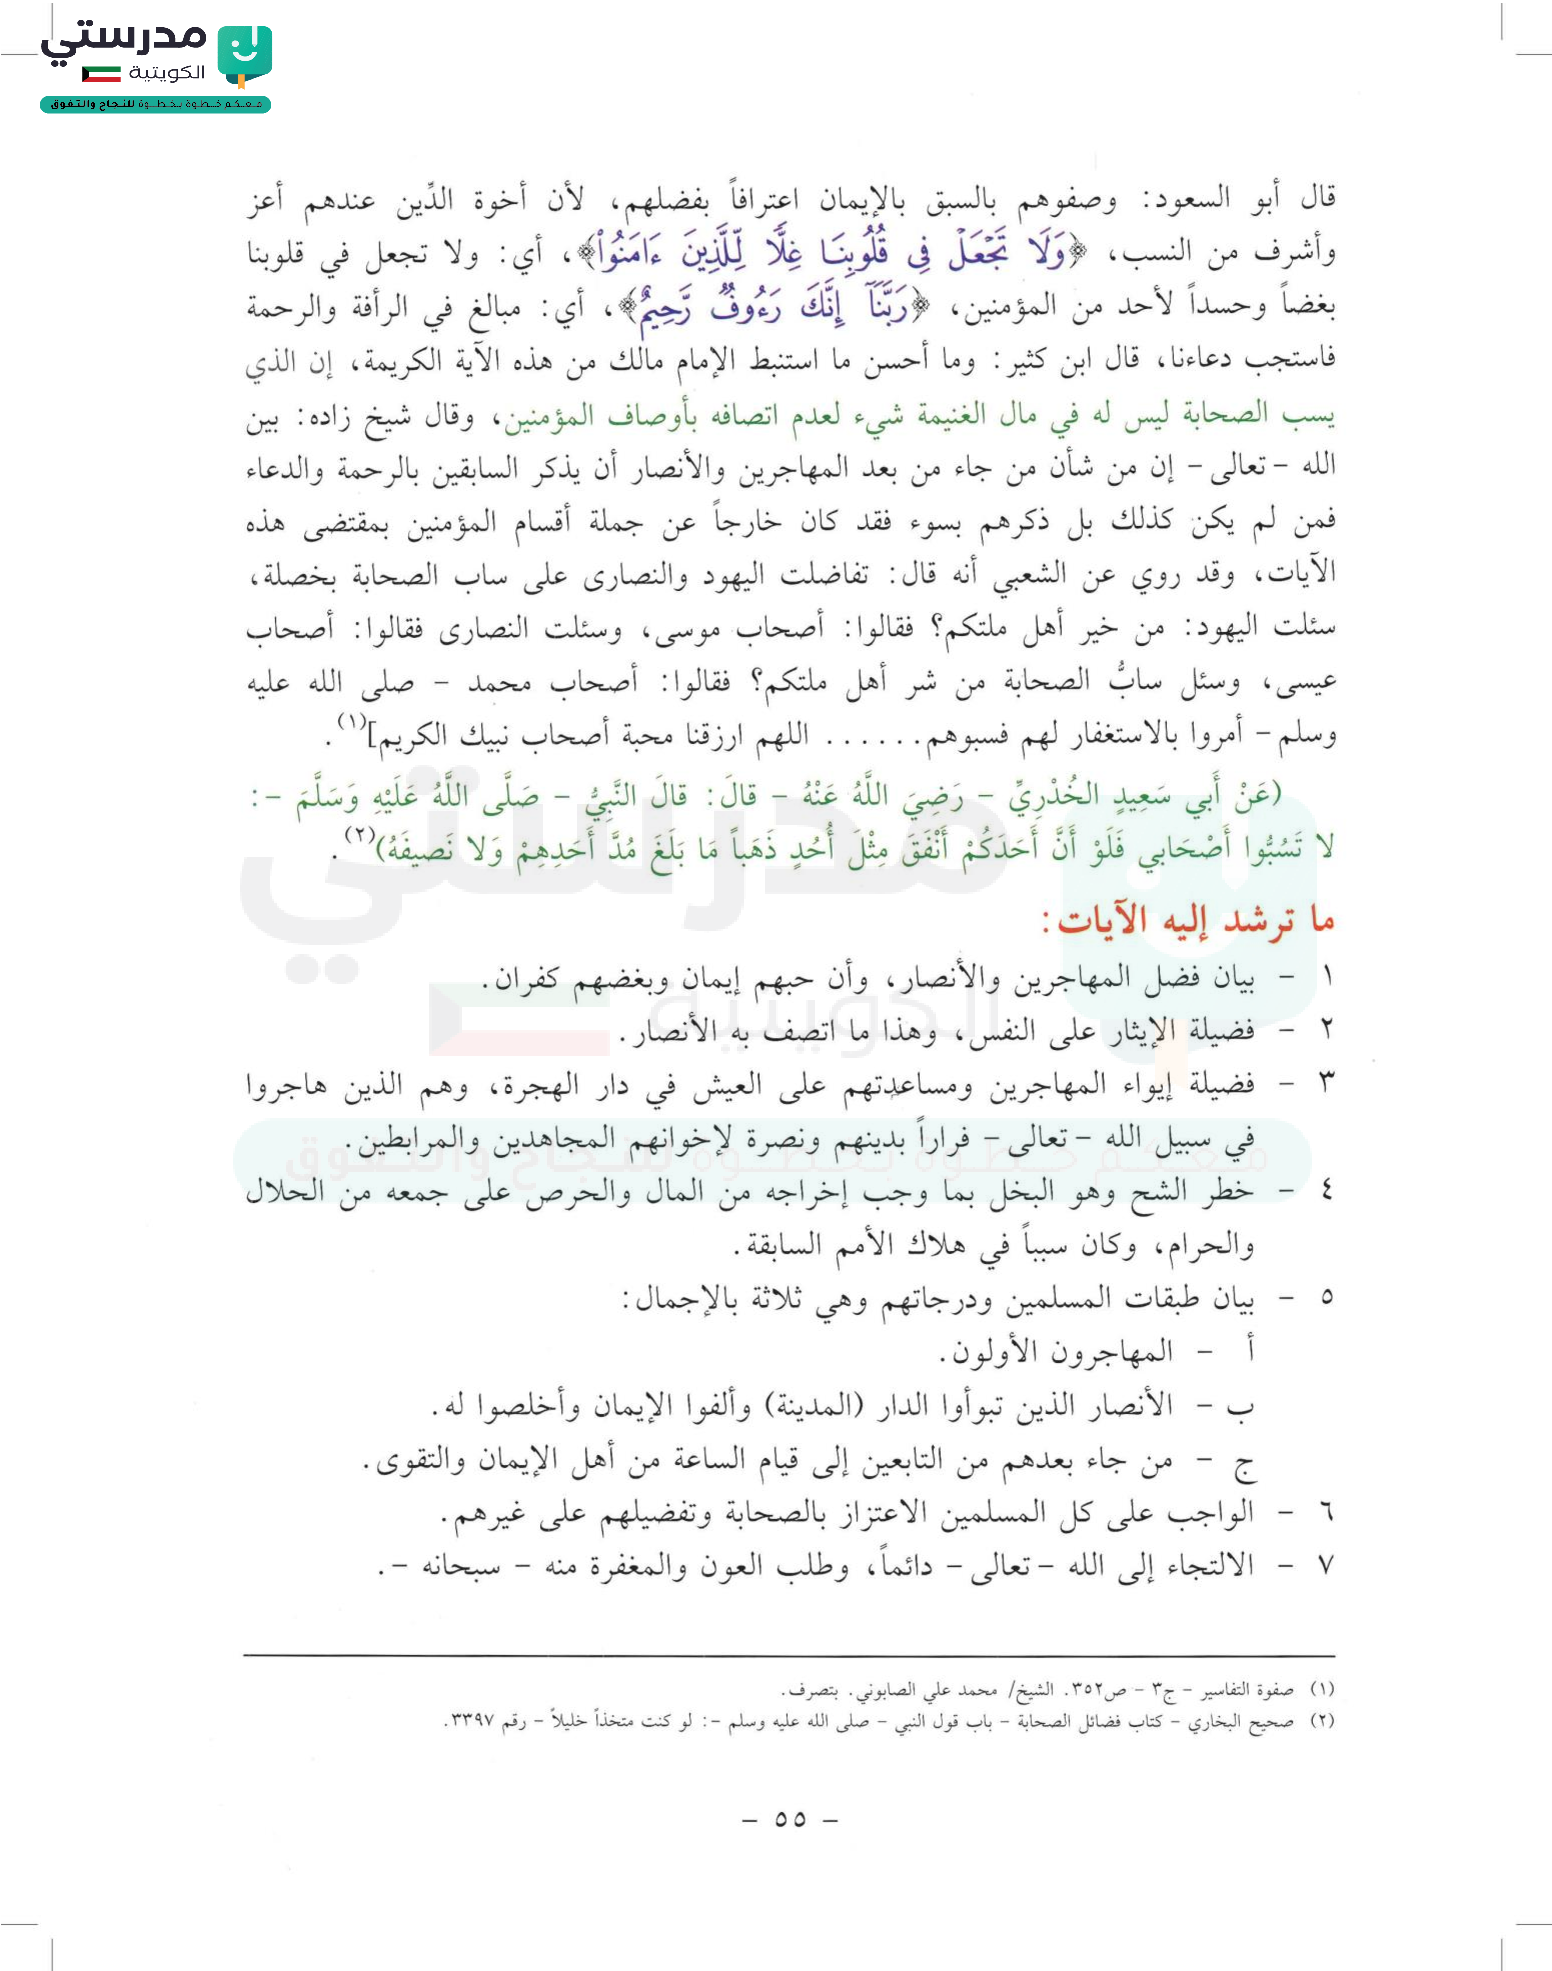 مدرستي
الكويتية
معكم خطوة بخطوة للنجاح والتفوق
قال أبو السعود: وصفوهم بالسبق بالإيمان اعترافاً بفضلهم، لأن أخوة الدِّين عندهم أعز
وأشرف من النسب، ﴿وَلَا تَجْعَلْ فِى قُلُوبِنَا غِلًّا لِّلَّذِينَ ءَامَنُوا۟﴾، أي: ولا تجعل في قلوبنا
بغضاً وحسداً لأحد من المؤمنين، ﴿رَبَّنَآ إِنَّكَ رَءُوفٌ رَّحِيمٌ﴾، أي: مبالغ في الرأفة والرحمة
فاستجب دعاءنا، قال ابن كثير: وما أحسن ما استنبط الإمام مالك من هذه الآية الكريمة، إن الذي
يسب الصحابة ليس له في مال الغنيمة شيء لعدم اتصافه بأوصاف المؤمنين، وقال شيخ زاده: بين
الله -تعالى- إن من شأن من جاء من بعد المهاجرين والأنصار أن يذكر السابقين بالرحمة والدعاء
فمن لم يكن كذلك بل ذكرهم بسوء فقد كان خارجاً عن جملة أقسام المؤمنين بمقتضى هذه
الآيات، وقد روي عن الشعبي أنه قال: تفاضلت اليهود والنصارى على ساب الصحابة بخصلة،
سئلت اليهود: من خير أهل ملتكم؟ فقالوا: أصحاب موسى، وسئلت النصارى فقالوا: أصحاب
عيسى، وسئل سابُّ الصحابة من شر أهل ملتكم؟ فقالوا: أصحاب محمد - صلى الله عليه
وسلم- أمروا بالاستغفار لهم فسبوهم...... اللهم ارزقنا محبة أصحاب نبيك الكريم](١).
(عَنْ أَبي سَعِيدٍ الخُدْرِيِّ - رَضِيَ اللَّهُ عَنْهُ - قالَ: قالَ النَّبِيُّ - صَلَّى اللَّهُ عَلَيْهِ وَسَلَّمَ -:
لا تَسُبُّوا أَصْحَابي فَلَوْ أَنَّ أَحَدَكُمْ أَنْفَقَ مِثْلَ أُحُدٍ ذَهَباً مَا بَلَغَ مُدَّ أَحَدِهِمْ وَلا نَصيفَهُ)(٢).
ما ترشد إليه الآيات:
١ - بيان فضل المهاجرين والأنصار، وأن حبهم إيمان وبغضهم كفران.
٢ - فضيلة الإيثار على النفس، وهذا ما اتصف به الأنصار.
٣ - فضيلة إيواء المهاجرين ومساعدتهم على العيش في دار الهجرة، وهم الذين هاجروا
في سبيل الله -تعالى- فراراً بدينهم ونصرة لإخوانهم المجاهدين والمرابطين.
٤ - خطر الشح وهو البخل بما وجب إخراجه من المال والحرص على جمعه من الحلال
والحرام، وكان سبباً في هلاك الأمم السابقة.
٥ - بيان طبقات المسلمين ودرجاتهم وهي ثلاثة بالإجمال:
أ - المهاجرون الأولون.
ب - الأنصار الذين تبوأوا الدار (المدينة) وألفوا الإيمان وأخلصوا له.
ج - من جاء بعدهم من التابعين إلى قيام الساعة من أهل الإيمان والتقوى.
٦ - الواجب على كل المسلمين الاعتزاز بالصحابة وتفضيلهم على غيرهم.
٧ - الالتجاء إلى الله -تعالى- دائماً، وطلب العون والمغفرة منه - سبحانه -.
(١) صفوة التفاسير - ج٣ - ص٣٥٢. الشيخ/ محمد علي الصابوني. بتصرف.
(٢) صحيح البخاري - كتاب فضائل الصحابة - باب قول النبي - صلى الله عليه وسلم -: لو كنت متخذاً خليلاً - رقم ٣٣٩٧.
- ٥٥ -